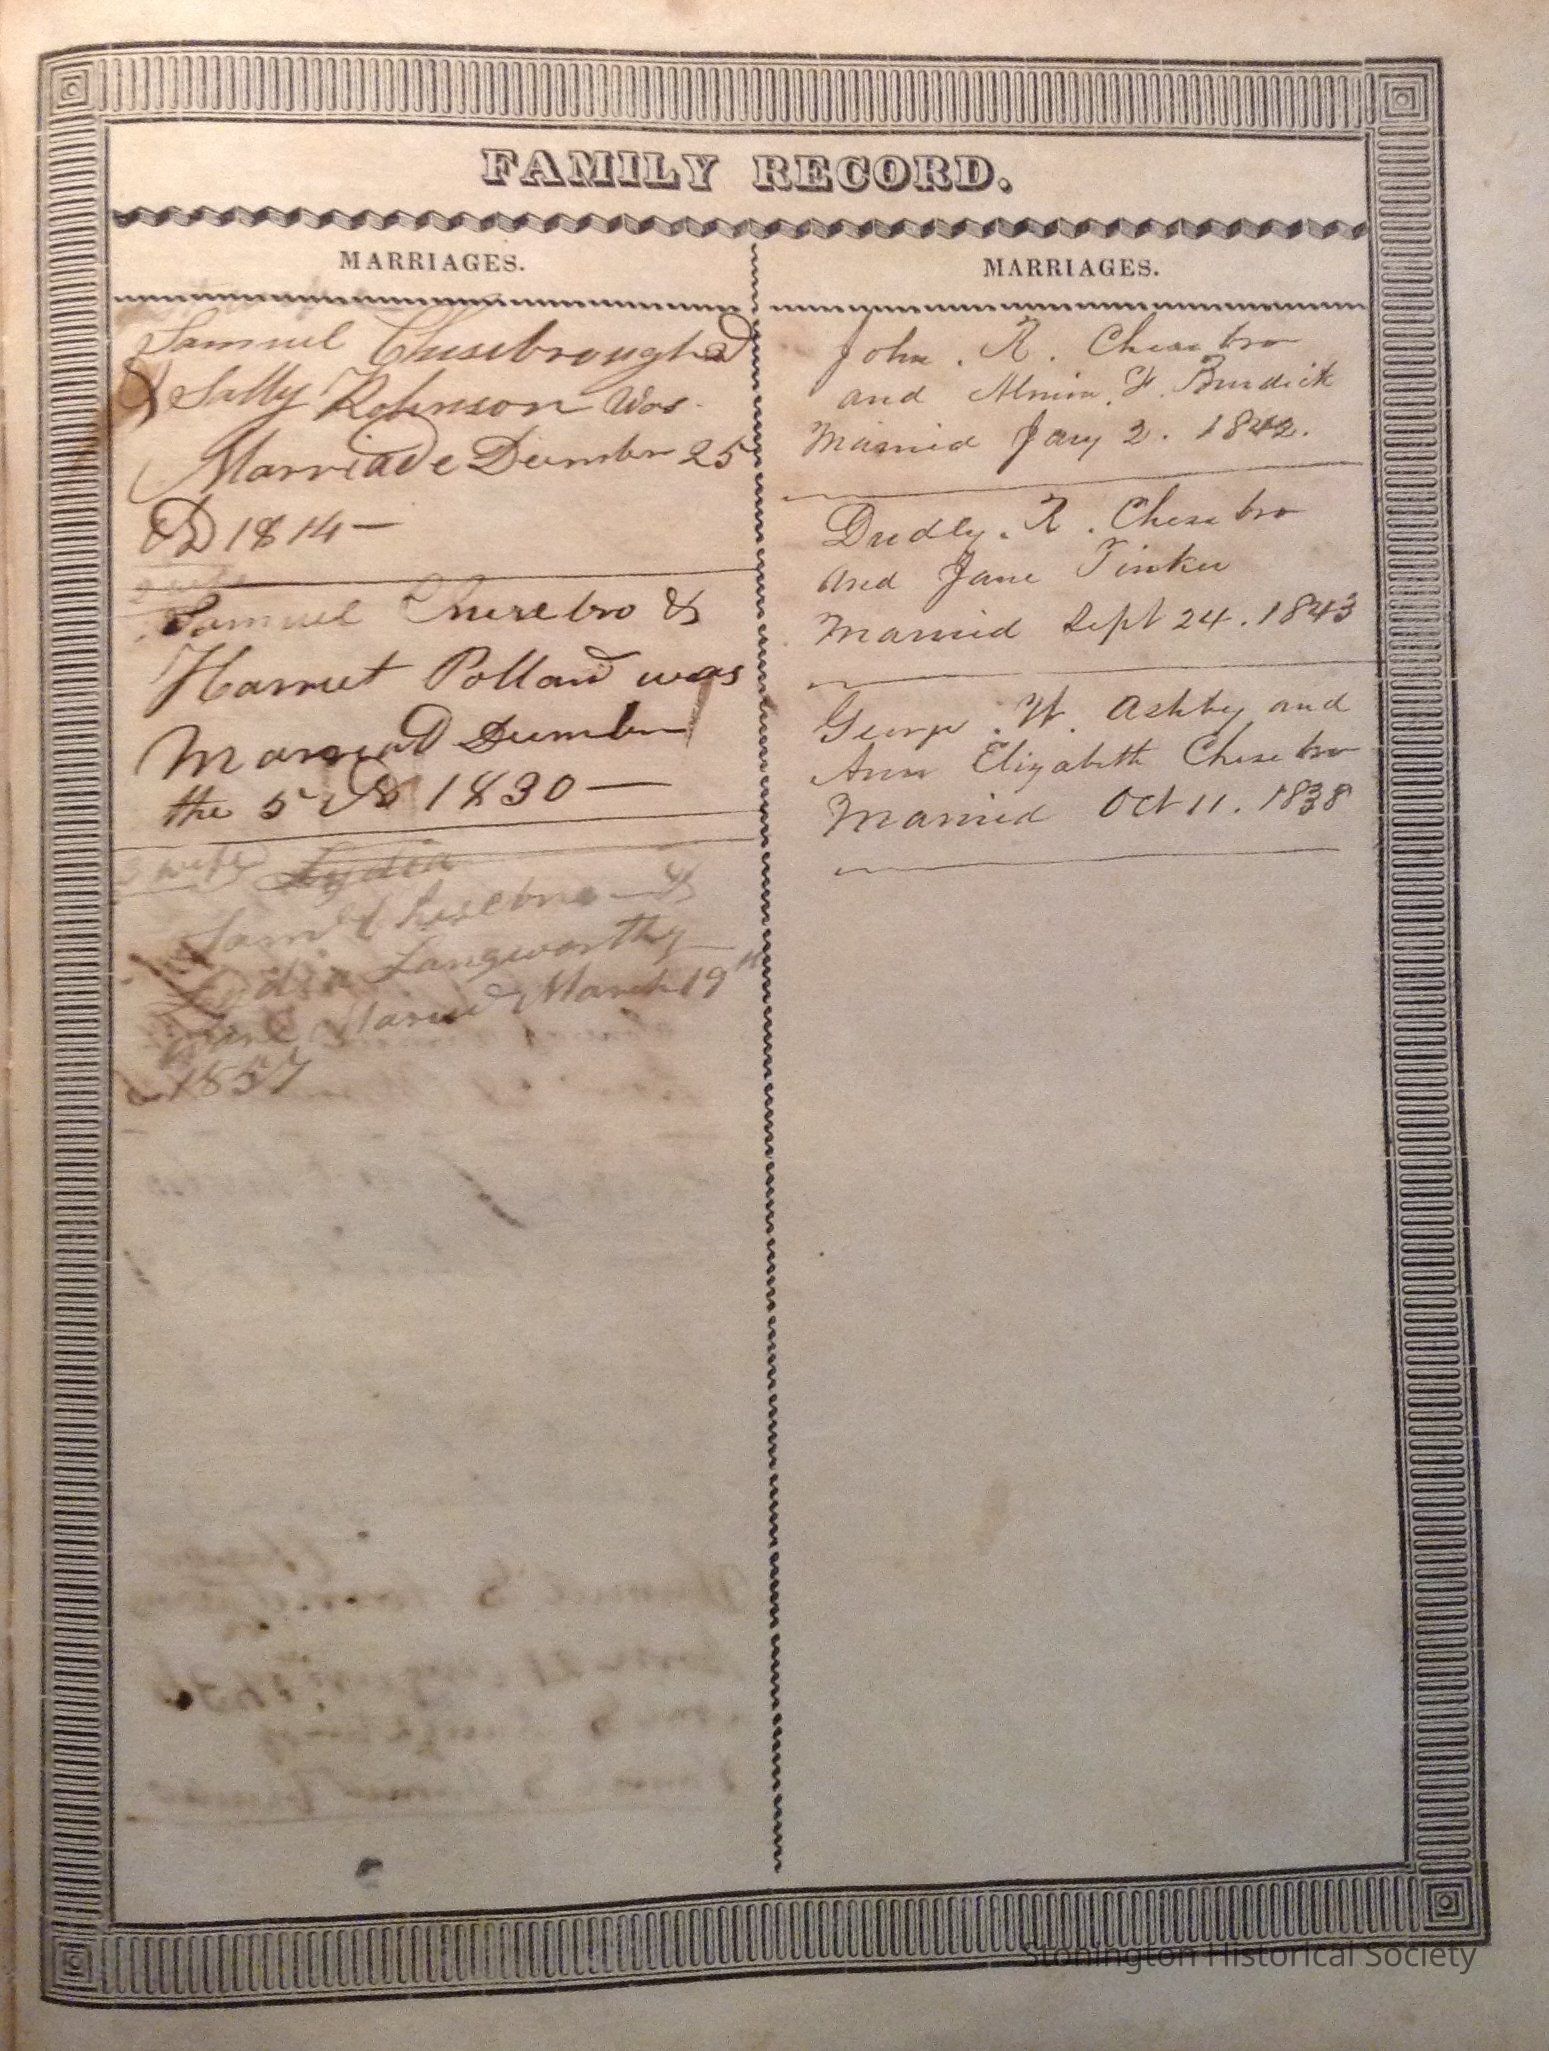 FAMILY RECORD.
MARRIAGES.
Samuel Chesebrough
& Sally Robinson Was
Marriade December 25
AD 1814 —
2 wife
Samuel Chesebro &
Harriet Pollard was
Married December
the 5 AD 1830 —
3 wife Lydia
Saml Chesebro — &
Lydia Langworthy
were Maried March 19th
1857
MARRIAGES.
John . R . Chesebro
and Almira . F . Burdick
Married Jany 2 . 1842 .
Dudley . R . Chesebro
And Jane Tinker
Married Sept 24 . 1843
George . W . Ashby and
Ann Elizabeth Chesebro
Married Oct 11 . 1838
Stonington Historical Society